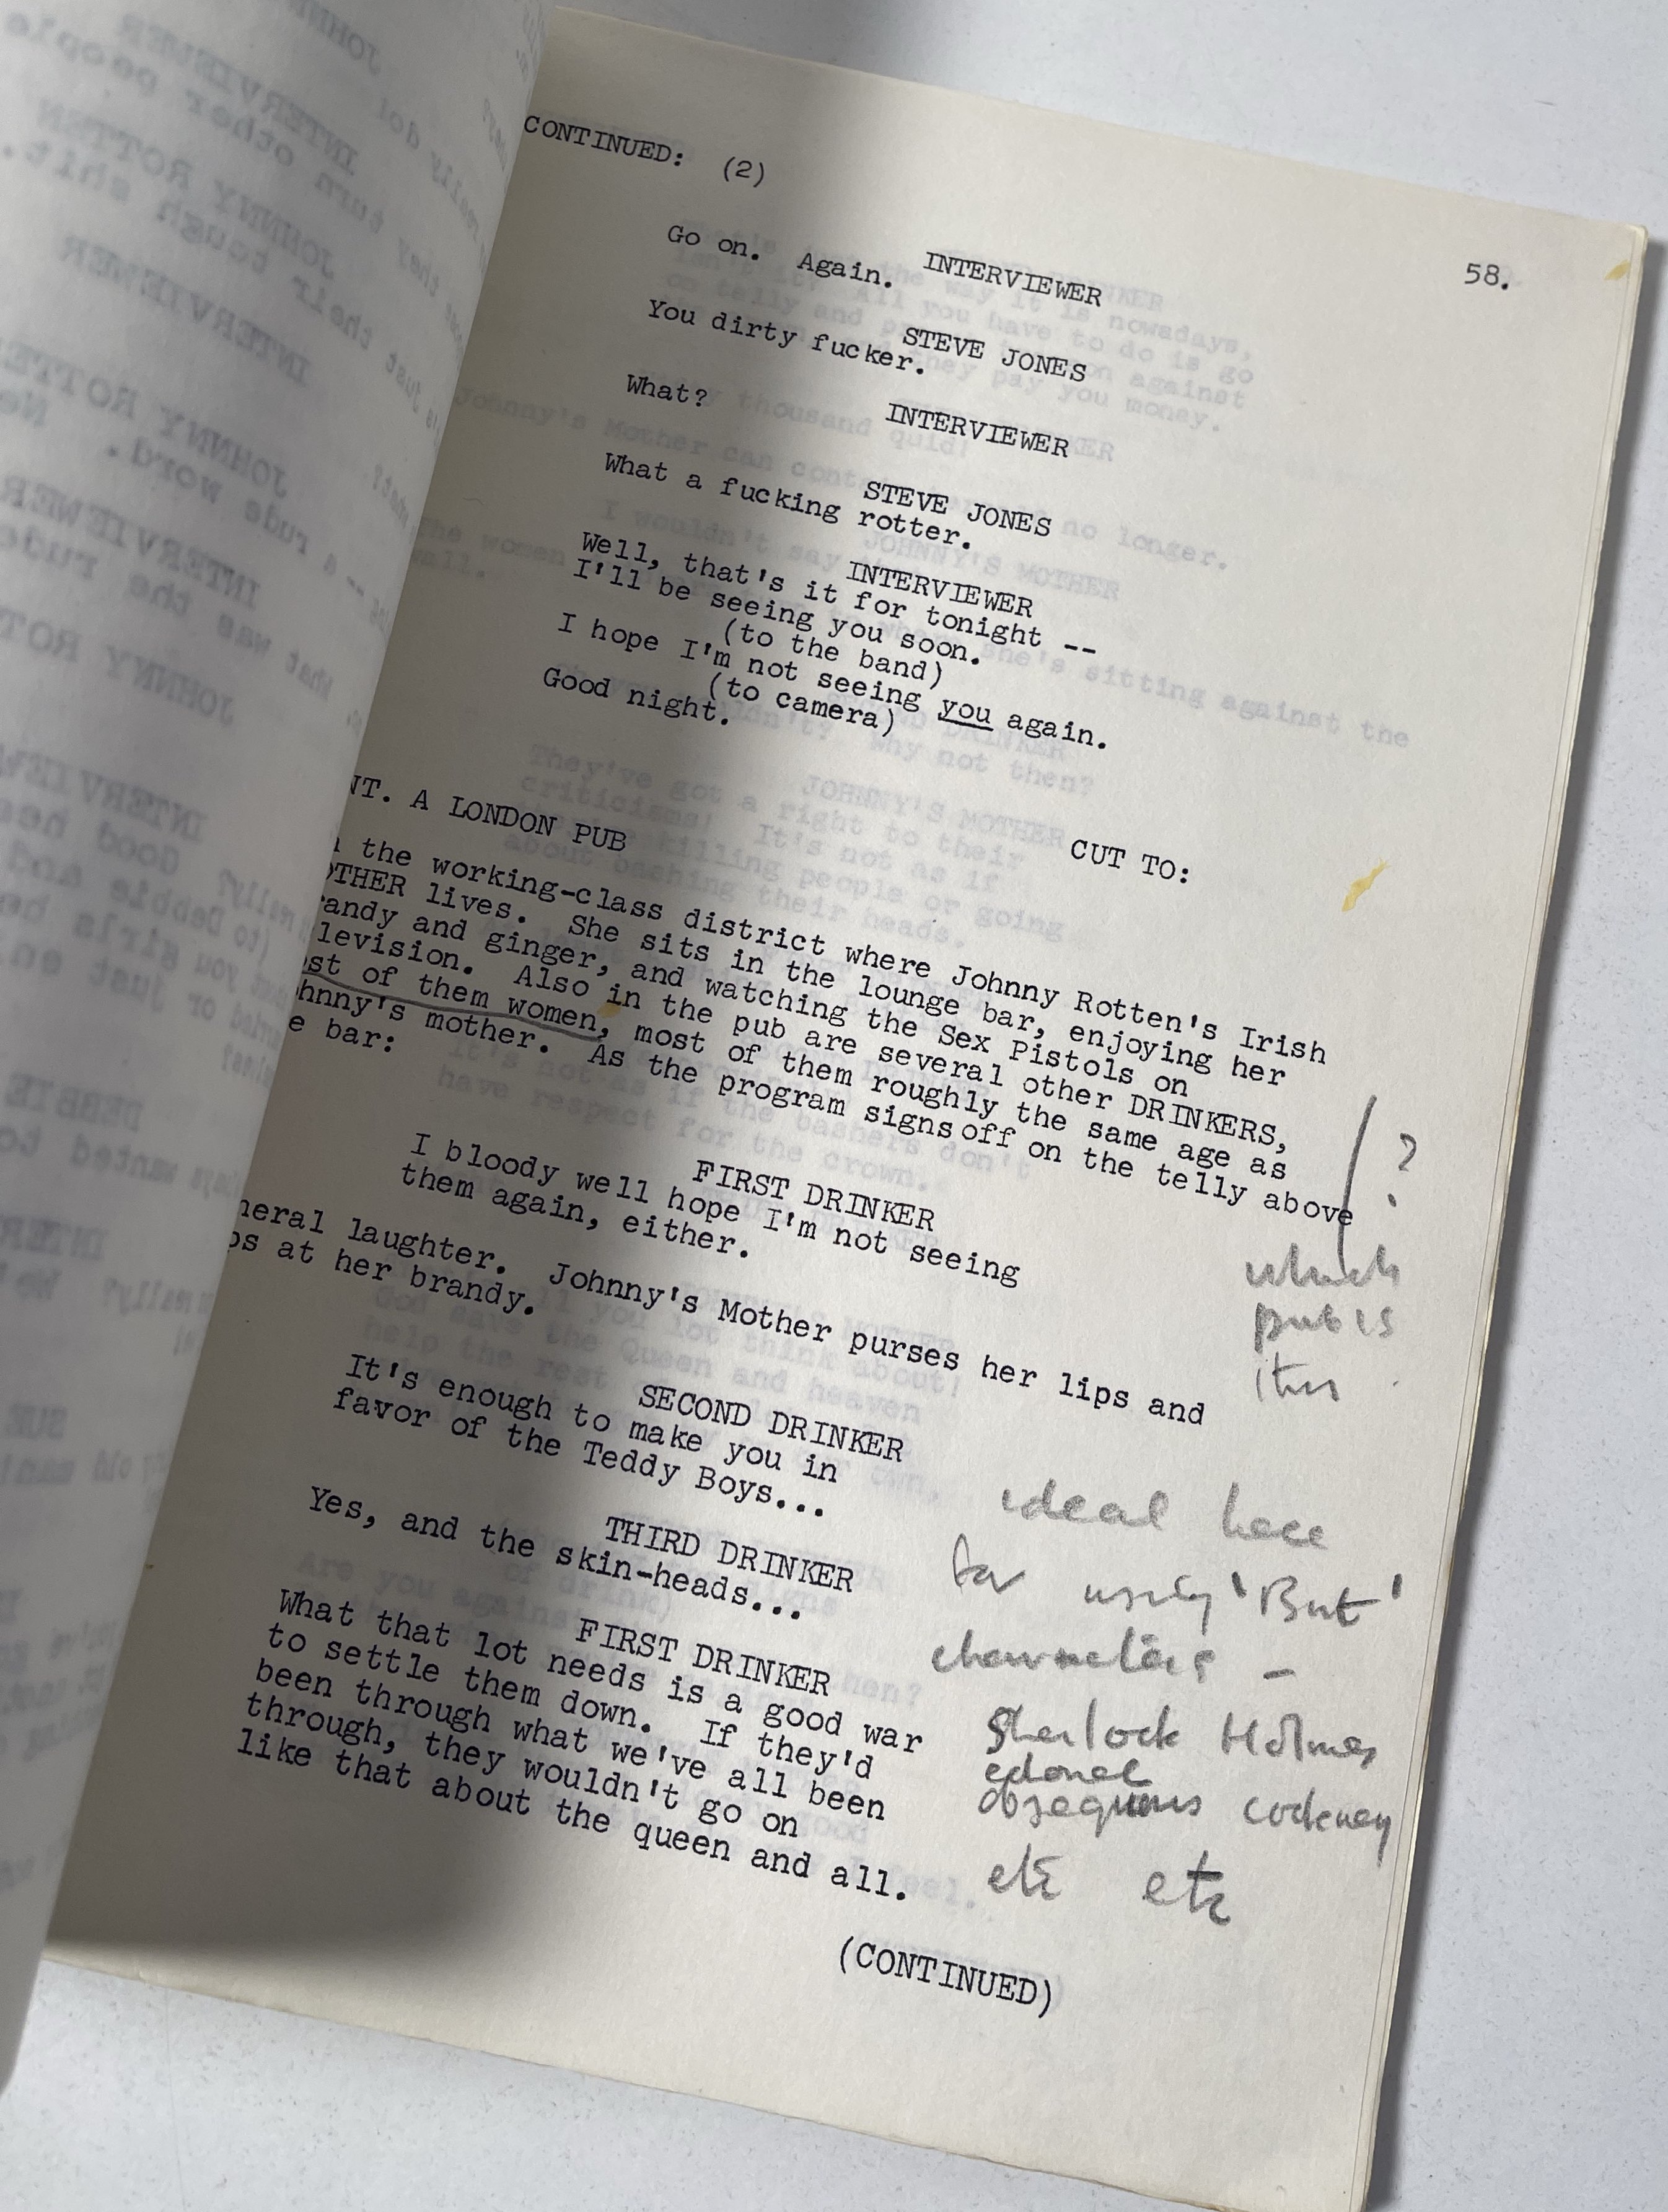 CONTINUED: (2)
58.
INTERVIEWER
Go on. Again.
STEVE JONES
You dirty fucker.
INTERVIEWER
What?
STEVE JONES
What a fucking rotter.
INTERVIEWER
Well, that's it for tonight --
I'll be seeing you soon.
(to the band)
I hope I'm not seeing you again.
(to camera)
Good night.
CUT TO:
NT. A LONDON PUB
the working-class district where Johnny Rotten's Irish
OTHER lives. She sits in the lounge bar, enjoying her
randy and ginger, and watching the Sex Pistols on
levision. Also in the pub are several other DRINKERS,
ost of them women, most of them roughly the same age as
hnny's mother. As the program signs off on the telly above
e bar:
?
which
pub is
this
FIRST DRINKER
I bloody well hope I'm not seeing
them again, either.
neral laughter. Johnny's Mother purses her lips and
ps at her brandy.
SECOND DRINKER
It's enough to make you in
favor of the Teddy Boys...
THIRD DRINKER
Yes, and the skin-heads...
FIRST DRINKER
What that lot needs is a good war
to settle them down. If they'd
been through what we've all been
through, they wouldn't go on
like that about the queen and all.
ideal here
for using 'Brit'
characters -
Sherlock Holmes
colonel
obsequious cockney
etc etc
(CONTINUED)